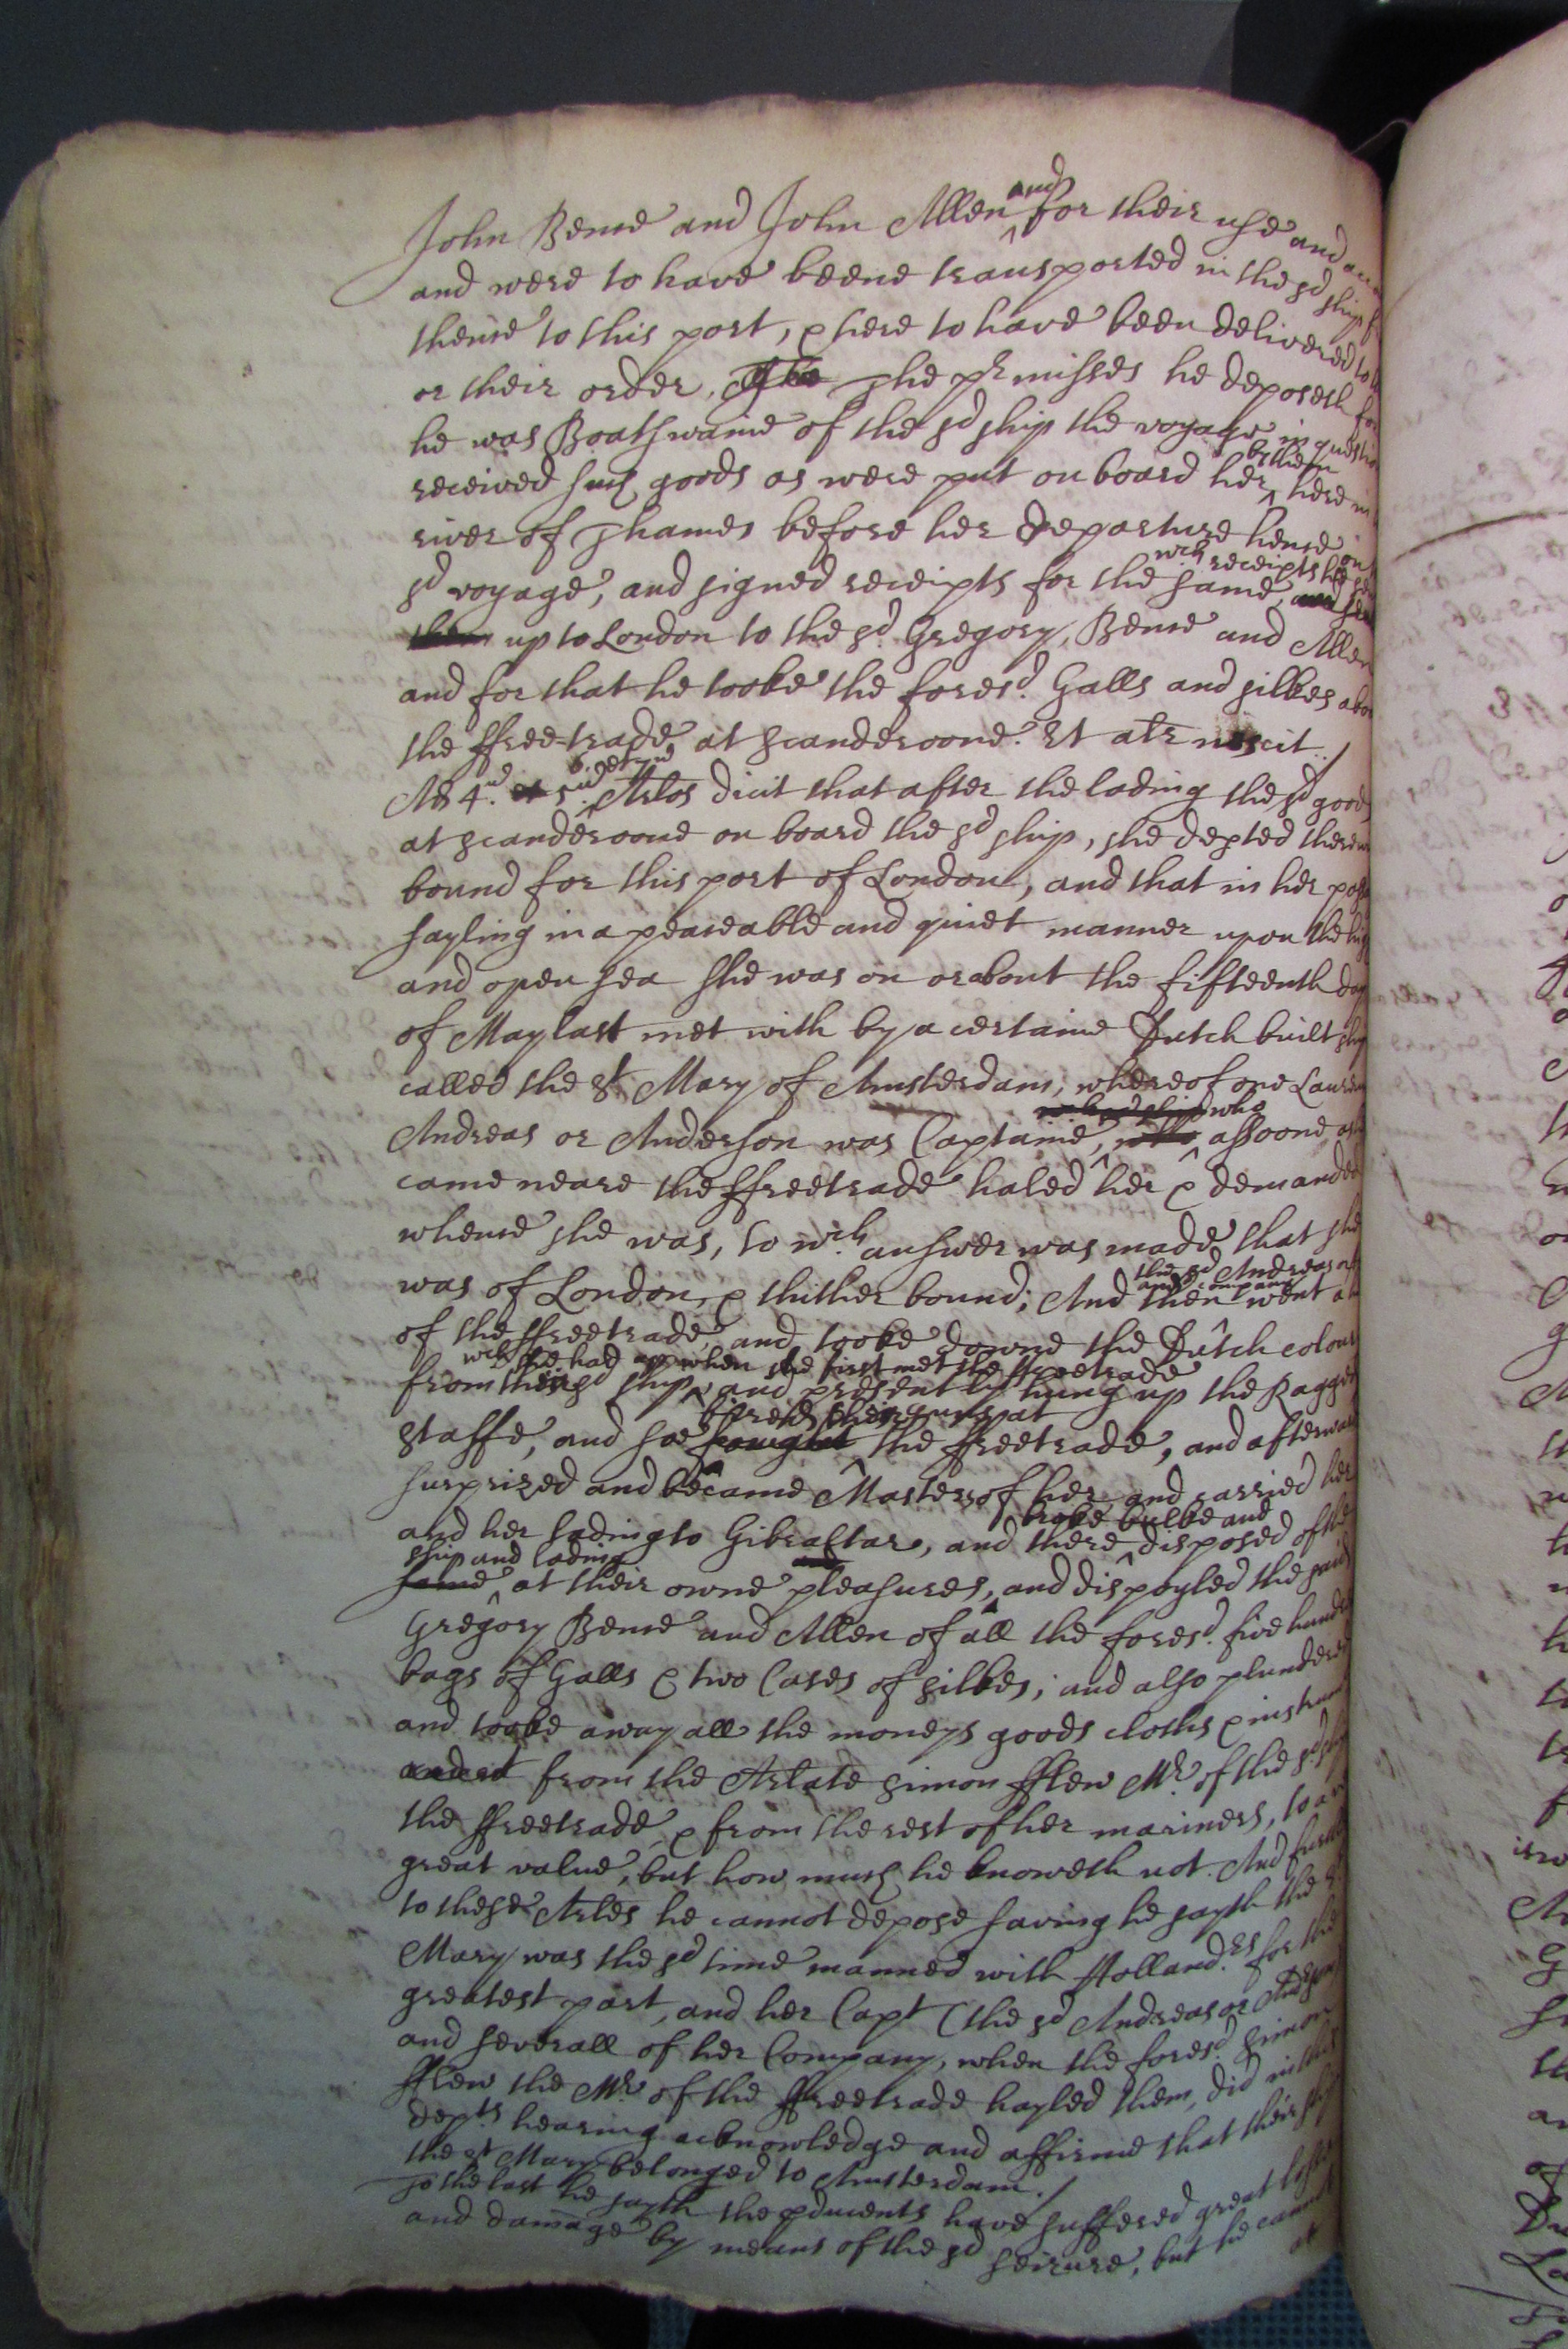 John Bence and John Allen and for their use and
and were to have beene transported in the sd ship
thence to this port, & here to have been delivered to
or their order, The prmisses he deposeth for
he was Boatswaine of the sd ship the voyage in question
received such goods as were put on board her by them here in
river of Thames before her departure hence on
sd voyage, and signed receipts for the same, wch receipts he sent
them up to London to the sd Gregory, Bence and Allen
and for that he tooke the foresd. Galls and silkes abo
the ffree-trade at Scanderoone. Et alr nescit./
Ad 4um. et 5um. 6. et 7um Arlos dicit that after the lading the sd goods
at Scanderoone on board the sd ship, she depted
bound for this port of London, and that in her pass
sayling in a peaceable and quiet manner upon the high
and open sea she was on or about the fifteenth day
of May last met with by a certaine Dutch built ship
called the St Mary of Amsterdam, whereof one
Andreas or Anderson was Captaine, who assoone as
came neare the ffreetrade haled her & demanded
whence she was, to wch. answer was made that she
was of London, & thither bound; And then the sd Andreas and company went
of the ffreetrade, and tooke downe the Dutch colours
from their sd ship, wch she had up when she first met the ffreetrade and presently hung up the Ragged
staffe, and soe fought fired their guns at the ffreetrade, and afterwards
surprized and became Masters of her, and carried her
and her lading to Gibraltar, and there broke bulke and disposed of the
same ship and lading at their owne pleasures, and dispoyled the said
Gregory Bence and Allen of all the foresd. five hundred
bags of Galls & two Cases of silkes; and also plundered
and tooke away all the moneys goods cloths &
from the Arlate Simon fflew Mr. of the sd ship
the ffreetrade, & from the rest of her mariners, to a
great value, but how much he knoweth not. And further
to these Arles he cannot depose saving he sayth the St
Mary was the sd time manned with Holland.ers for the
greatest part, and her Capt (the sd Andreas or Anderson
and severall of her Company, when the foresd Simon
fflew the Mr of the ffreetrade hayled them, did in this
depts hearing acknowledge and affirme that their ship
the St Mary belonged to Amsterdam./
To the last he sayth the pducents have suffered great losse
and damage by means of the sd seizure, but he cannot